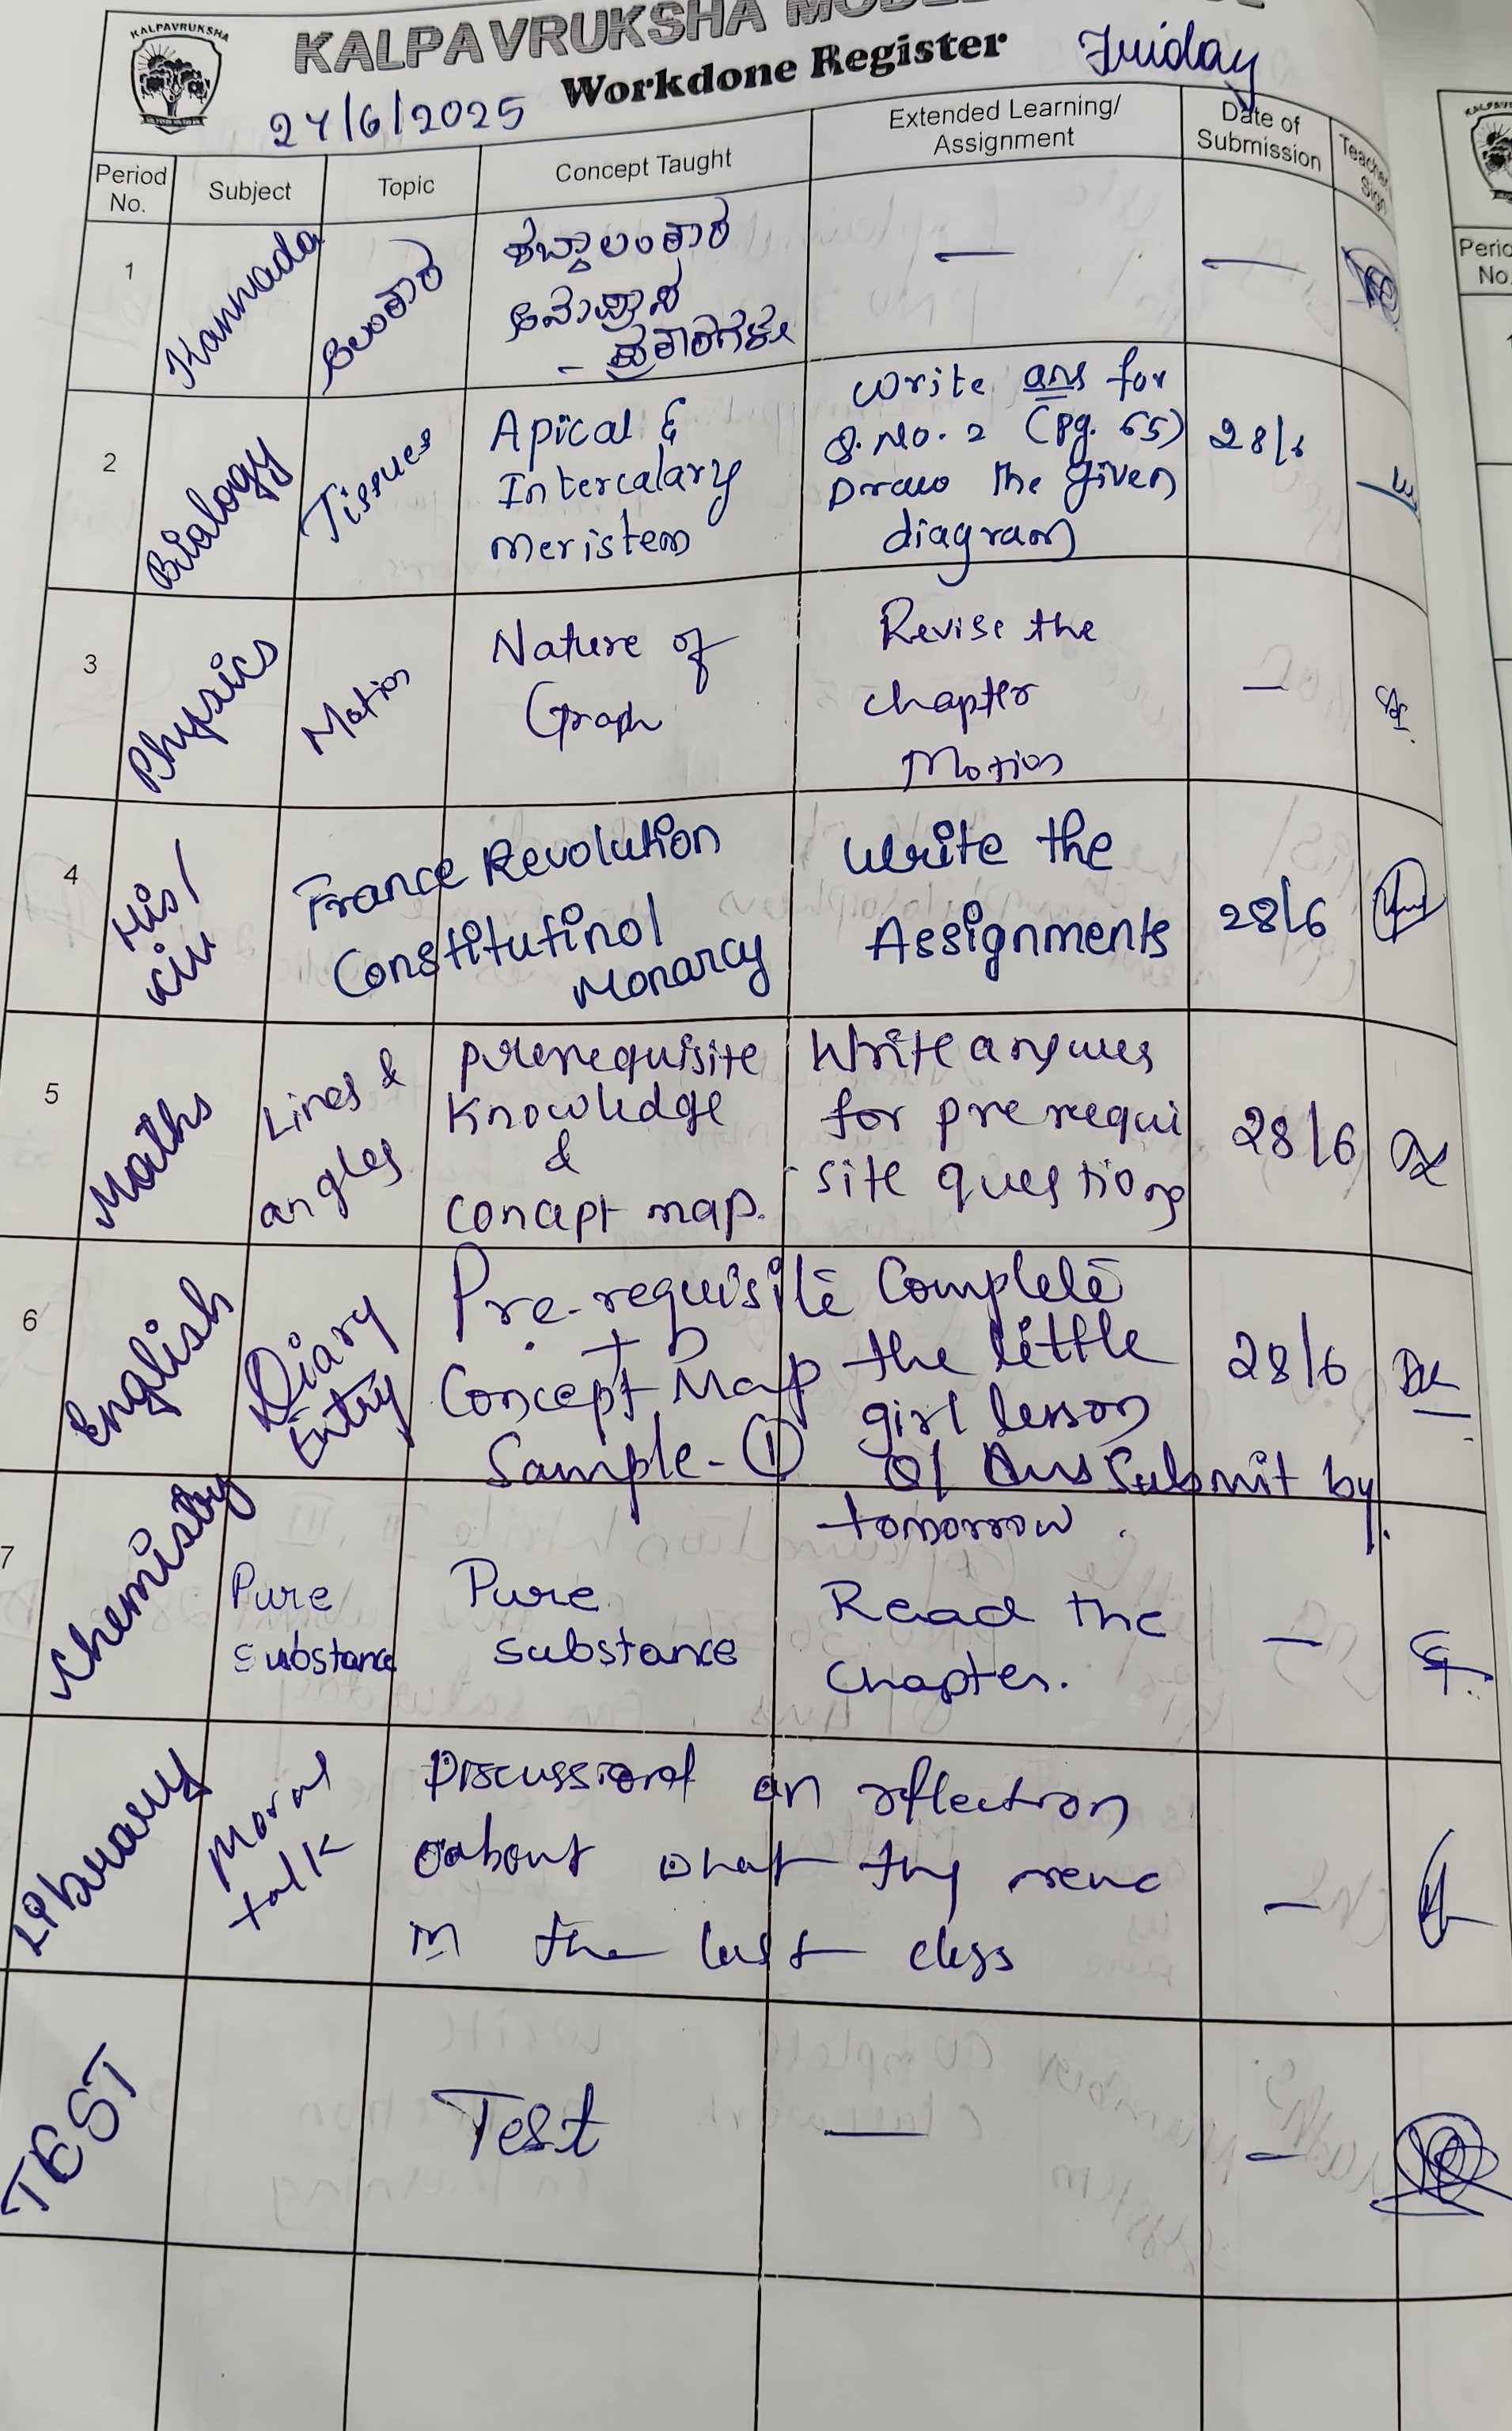 KALPAVRUKSHA
KALPAVRUKSHA
Workdone Register
Friday
27/6/2025
Period No.
Subject
Topic
Concept Taught
Extended Learning/
Assignment
Date of
Submission
Teacher
Sign
1
Kannada
ಅಲಂಕಾರ
ಶಬ್ದಾಲಂಕಾರ
ಅನುಪ್ರಾಸ
- ಪ್ರಕಾರಗಳು
—
—
2
Biology
Tissues
Apical &
Intercalary
meristem
Write ans for
Q.No. 2 (Pg. 65)
Draw the given
diagram
28/6
3
Physics
Motion
Nature of
Graph
Revise the
chapter
Motion
—
4
His/
civ
France Revolution
Constitutinol
Monarcy
Write the
Assignments
28/6
5
Maths
Lines &
angles
prerequisite
Knowledge
&
concept map.
Write answers
for prerequi
site questions
28/6
6
English
Diary
Entry
Pre-requisite
+
Concept Map
Sample-①
Complete
the little
girl lesson
Q/ Ans Submit by
tomorrow.
28/6
7
Chemistry
Pure
Substance
Pure
substance
Read the
Chapter.
—
Library
Moral
talk
Discussion an reflection
about what they
in the last class
—
TEST
Test
—
—
Perio
No.